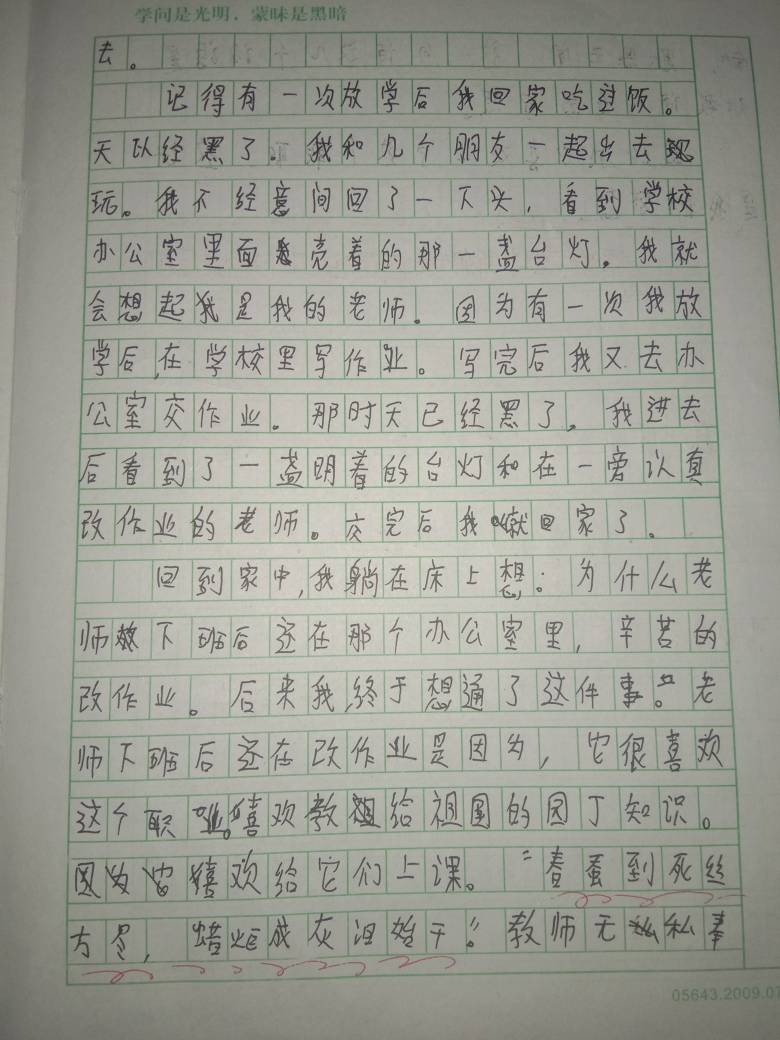 学问是光明，蒙昧是黑暗
去。
记得有一次放学后我回家吃过饭。
天以经黑了。我和几个朋友一起出去
玩。我不经意间回了一下头，看到学校
办公室里面亮着的那一盏台灯。我就
会想起我是我的老师。因为有一次我放
学后，在学校里写作业。写完后我又去办
公室交作业。那时天已经黑了，我进去
后看到了一盏明着的台灯和在一旁认真
改作业的老师。交完后我就回家了。
回到家中，我躺在床上想：为什么老
师下班后还在那个办公室里，辛苦的
改作业。后来我终于想通了这件事。老
师下班后还在改作业是因为，它很喜欢
这个职业。嘻欢教给祖国的园丁知识。
因为嘻欢给它们上课。“春蚕到死丝
方尽，蜡炬成灰泪始干。”教师无私奉
05643.2009.07